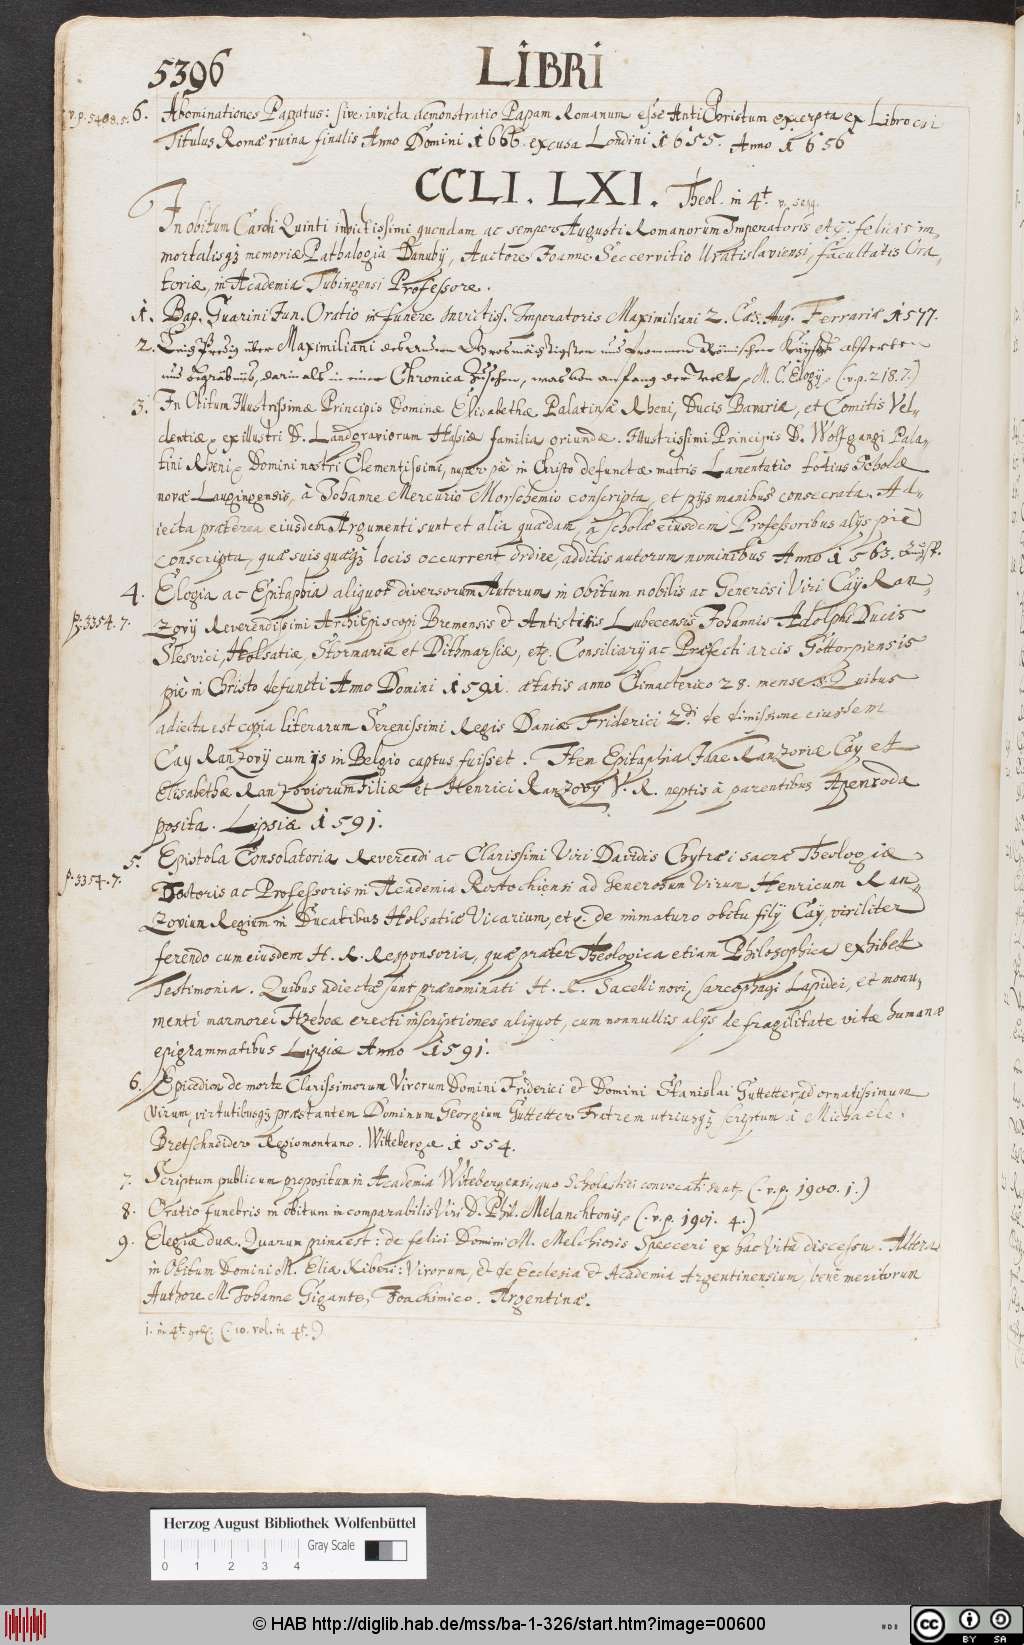 5396 LIBRI
v. p. 5408. 5. 6. Abominationes Papatus: sive invicta demonstratio Papam Romanum esse AntiChristum excerpta ex Libro cui
Titulus Romæ ruina finalis Anno Domini 1666. excusa Londini 1655. Anno 1656
CCLI. LXI. Theol. in 4t.
In obitum Caroli Quinti invictissimi quondam ac semper Augusti Romanorum Imperatoris felicis im-
mortalisq3 memoriæ Pathalogia Danubij, Auctore Joanne Seccervitio Uratislaviensi, facultatis Ora-
toriæ, in Academia Tubingensi Professore.
1. Bap. Guarini Jun. Oratio in funere Invictiss. Imperatoris Maximiliani 2. Cæs. Aug. Ferrariæ 1577.
2. Leich Predig über Maximiliani des Andern Grosmächtigsten und frommen Römischen Kaysers absterben
und begräbnüs, darin als in einer Chronica zusehen, was von anfang der Welt, M. C. Elogy, (. v. p. 218. 7.)
3. In Obitum Illustrissimæ Principis Dominæ Elisabethæ Palatinæ Rheni, Ducis Bavariæ, et Comitis Vel-
dentiæ, ex illustri D. Landgraviorum Hassiæ familia oriundæ. Illustrissimi Principis D. Wolfgangi Pala-
tini Rheni, Domini nostri Clementissimi, nuper piè in Christo defunctæ matris Lamentatio totius Scholæ
novæ Laugingensis, à Johanne Mercurio Morshemio conscripta, et pijs manibus consecrata. Ad-
iecta præterea eiusdem Argumenti sunt et alia quædam, à Scholæ eiusdem Professoribus alijs piè
conscripta, quæ suis quæq3 locis occurrent ordine, additis autorum nominibus Anno 1563.
4. Elogia ac Epitaphia aliquot diversorum Autorum in obitum nobilis ac Generosi Viri Cay Ran-
p. 3354. 7. zovij Reverendissimi ArchiEpiscopi Bremensis et Antistitis Lubecensis Johannis Adolphi Ducis
Slesvici, Holsatiæ, Stormariæ et Dithmarsiæ, etc. Consiliarij ac Præfecti arcis Gottorpiensis
piè in Christo defuncti Anno Domini 1591. ætatis anno Climacterico 28. mense 8. Quibus
adiecta est copia literarum Serenissimi Regis Daniæ Friderici 2di de dimissione eiusdem
Cay Ranzovij cum ijs in Belgio captus fuisset. Item Epitaphia Idae Ranzoviæ Cay et
Elisabethæ Ranzoviorum Filiæ et Henrici Ranzovij V. R. neptis à parentibus Apenroda
posita. Lipsiæ 1591.
5. Epistola Consolatoria Reverendi ac Clarissimi Viri Davidis Chytræi sacræ Theologiæ
p. 3354. 7. Doctoris ac Professoris in Academia Rostochiensi ad Generosum Virum Henricum Ran-
zovium Regium in Ducatibus Holsatiæ Vicarium, etc. de immaturo obitu filij Cay, viriliter
ferendo cum eiusdem H. R. Responsoria, quæ præter Theologica etiam Philosophica exhibet
Testimonia. Quibus adiectæ sunt prænominati H. R. Sacelli novi, sarcophagi Lapidei, et monu-
menti marmorei Itzehoæ erecti inscriptiones aliquot, cum nonnullis alijs de fragilitate vitæ humanæ
epigrammatibus Lipsiæ Anno 1591.
6. Epicedion de morte Clarissimorum Virorum Domini Friderici et Domini Stanislai Guttetter, ad ornatissimum
Virum, virtutibusq3 præstantem Dominum Georgium Guttetter Fratrem utriusq3 scriptum à Michaele
Bretschneider Regiomontano. Wittebergæ 1554.
7. Scriptum publicum propositum in Academia Witebergensi, quo Scholastici convocati sunt, (. v. p. 1900. 1.)
8. Oratio funebris in obitum incomparabilis Viri D. Phil. Melanchtonis, (. v. p. 1901. 4.)
9. Elegiæ duæ. Quarum prima est: de felici Domini M. Melchioris Specceri ex hac vita discessu. Altera
in Obitum Domini M. Eliæ Kiberi: Virorum, et de Ecclesia et Academia Argentinensium, bene meritorum
Authore M. Johanne Gigante, Joachimico. Argentinæ.
1. in 4t. (. 10. vol. in 4t.)
Herzog August Bibliothek Wolfenbüttel
Gray Scale
0 1 2 3 4
© HAB http://diglib.hab.de/mss/ba-1-326/start.htm?image=00600
cc BY SA